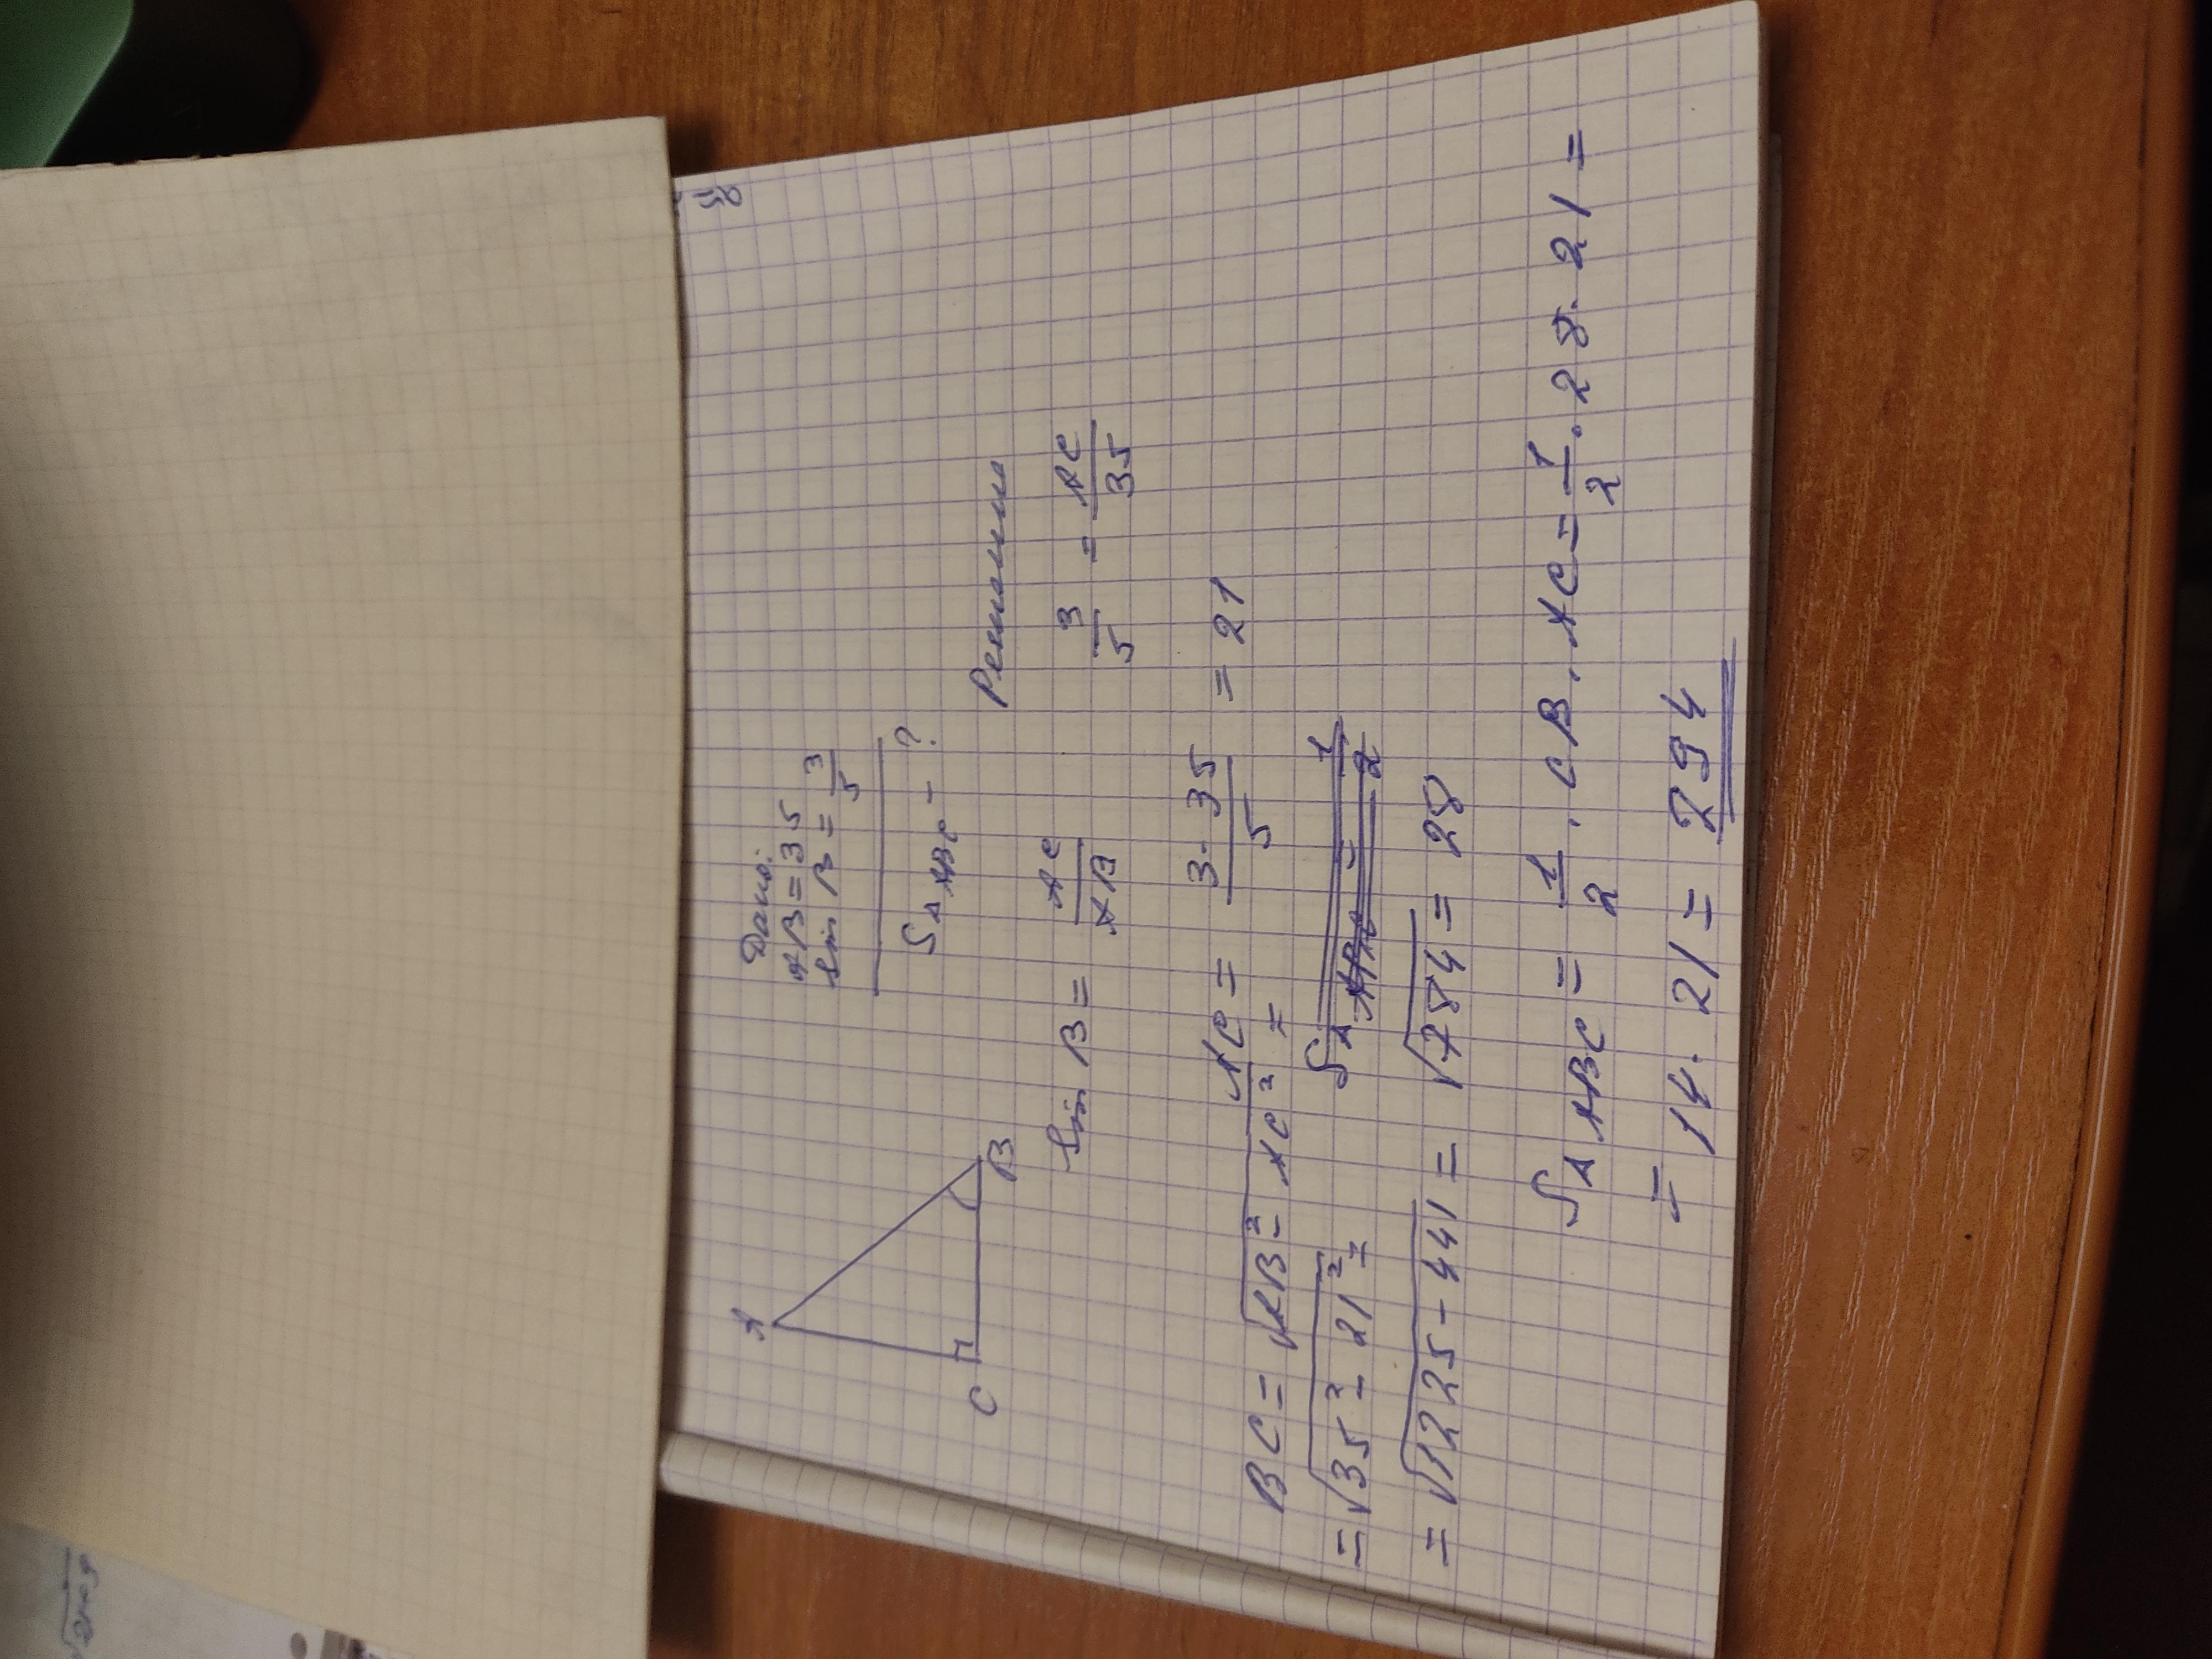 A
C
B
Дано:
AB = 35
sin B = 3/5
S△ABC - ?
Решение
sin B = AC/AB
3/5 = AC/35
AC = 3·35/5 = 21
BC = √AB² - AC² =
= √35² - 21² =
S△ABC = 1/2
= √1225 - 441 = √784 = 28
S△ABC = 1/2 · CB · AC = 1/2 · 28 · 21 =
= 14 · 21 = 294